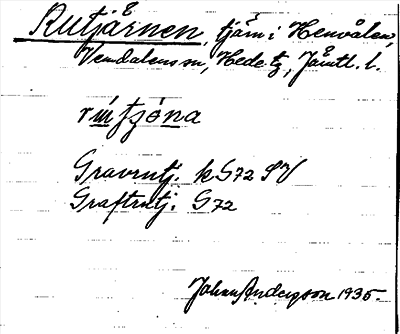 Rutjärnen, tjärn i Henvålen,
Vemdalens sn, Hede tg, Jämtl. l.
rútjǝ́na
Gravrutj. k G72 SV
Graftrutj. G72
Johan Anderzon 1935.